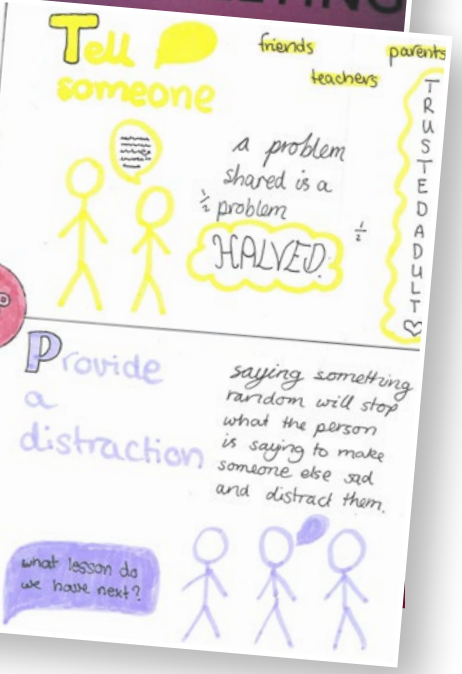 Tell
someone
friends
teachers
parents
TRUSTED ADULT
a problem
shared is a
1/2 problem
1/2
HALVED.
Provide
a
distraction
saying something
random will stop
what the person
is saying to make
someone else sad
and distract them.
what lesson do
we have next?